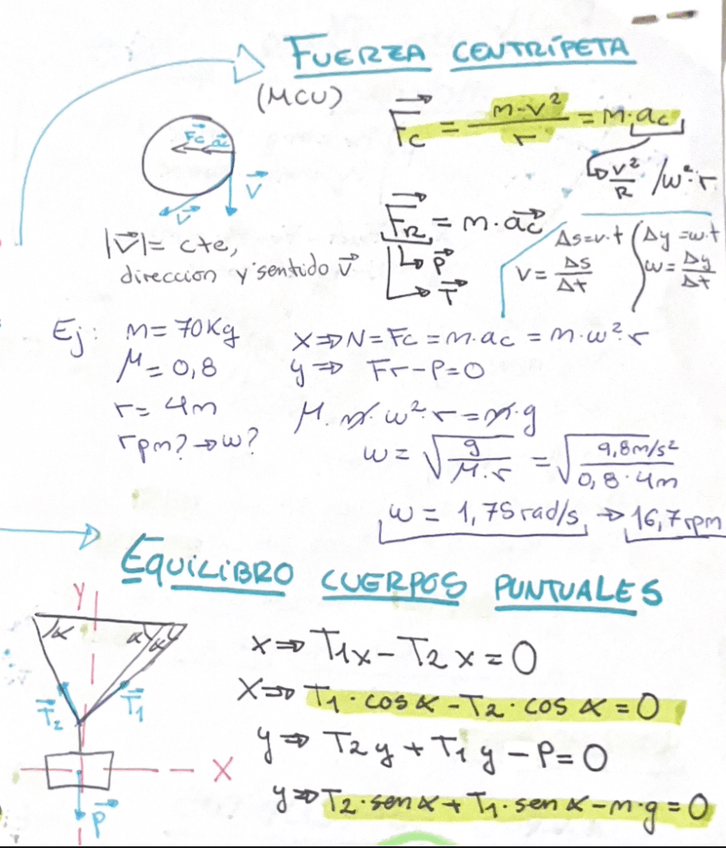 FUERZA CENTRÍPETA
(MCU)
Fc = m·v² / r = m·ac
Fc ac
v²/R / w²·r
V
V
FR = m·ac
P
T
Δs=v·t
V = Δs/Δt
Δy=w·t
w = Δy/Δt
|V|= cte,
dirección y sentido V
Ej: m= 70Kg
μ= 0,8
r= 4m
rpm? → w?
x ⇒ N = Fc = m·ac = m·w²·r
y ⇒ Fr-P=0
μ·m·w²·r = m·g
w = √(g / μ·r) = √(9,8m/s² / 0,8·4m)
w = 1,75 rad/s, → 16,7rpm
EQUILIBRO CUERPOS PUNTUALES
Y
α α α
T2 T1
X
P
x ⇒ T1x - T2x = 0
x ⇒ T1·cos α - T2·cos α = 0
y ⇒ T2y + T1y - P = 0
y ⇒ T2·sen α + T1·sen α - m·g = 0